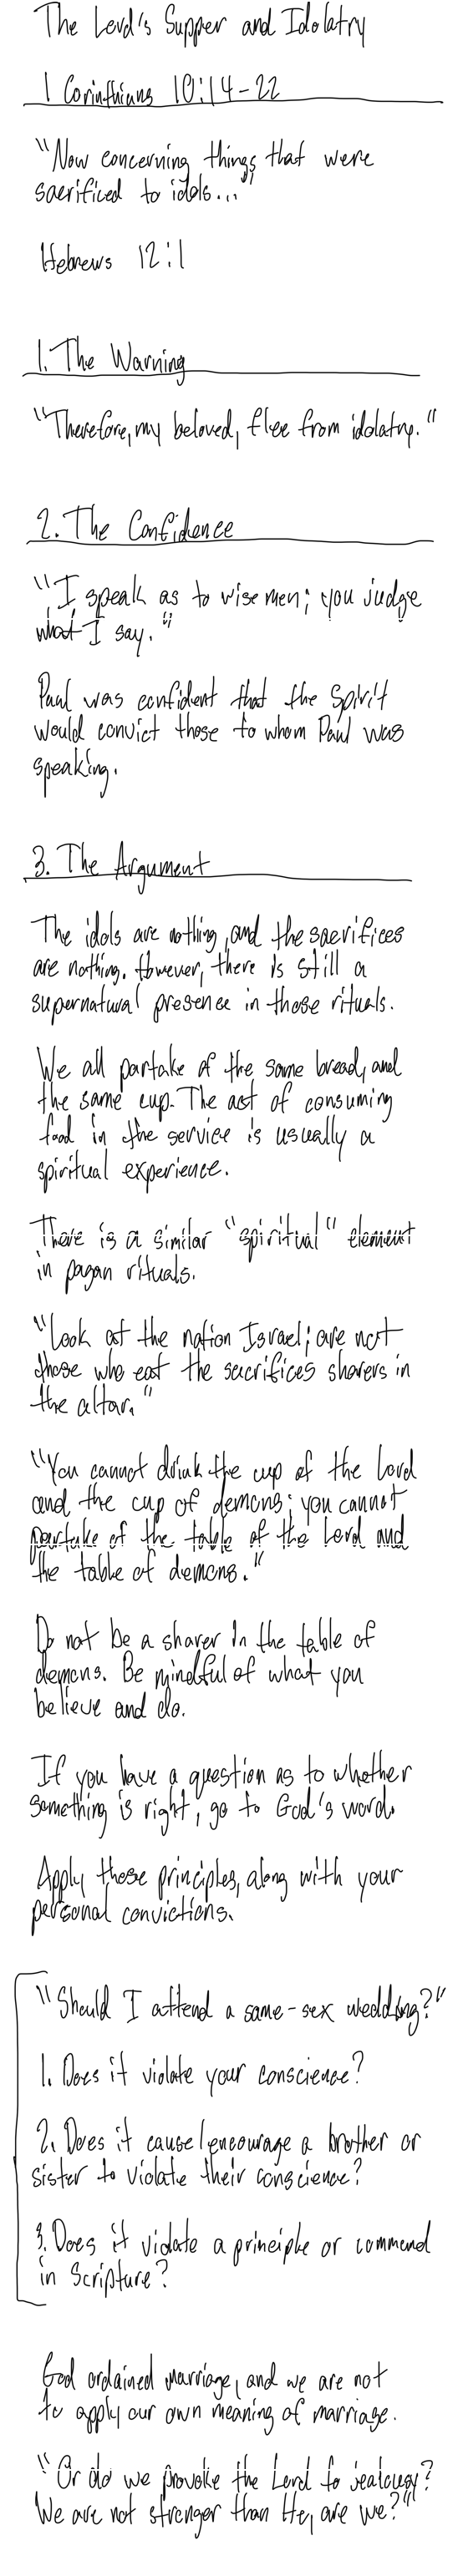 The Lord's Supper and Idolatry
1 Corinthians 10:14-22
"Now concerning things that were
sacrificed to idols..."
Hebrews 12:1
1. The Warning
"Therefore, my beloved, flee from idolatry."
2. The Confidence
"I speak as to wise men; you judge
what I say."
Paul was confident that the Spirit
would convict those to whom Paul was
speaking.
3. The Argument
The idols are nothing, and the sacrifices
are nothing. However, there is still a
supernatural presence in those rituals.
We all partake of the same bread, and
the same cup. The act of consuming
food in the service is usually a
spiritual experience.
There is a similar "spiritual" element
in pagan rituals.
"Look at the nation Israel; are not
those who eat the sacrifices sharers in
the altar."
"You cannot drink the cup of the Lord
and the cup of demons; you cannot
partake of the table of the Lord and
the table of demons."
Do not be a sharer in the table of
demons. Be mindful of what you
believe and do.
If you have a question as to whether
something is right, go to God's word.
Apply those principles, along with your
personal convictions.
"Should I attend a same-sex wedding?"
1. Does it violate your conscience?
2. Does it cause/encourage a brother or
sister to violate their conscience?
3. Does it violate a principle or command
in Scripture?
God ordained marriage, and we are not
to apply our own meaning of marriage.
"Or do we provoke the Lord to jealousy?
We are not stronger than He, are we?"